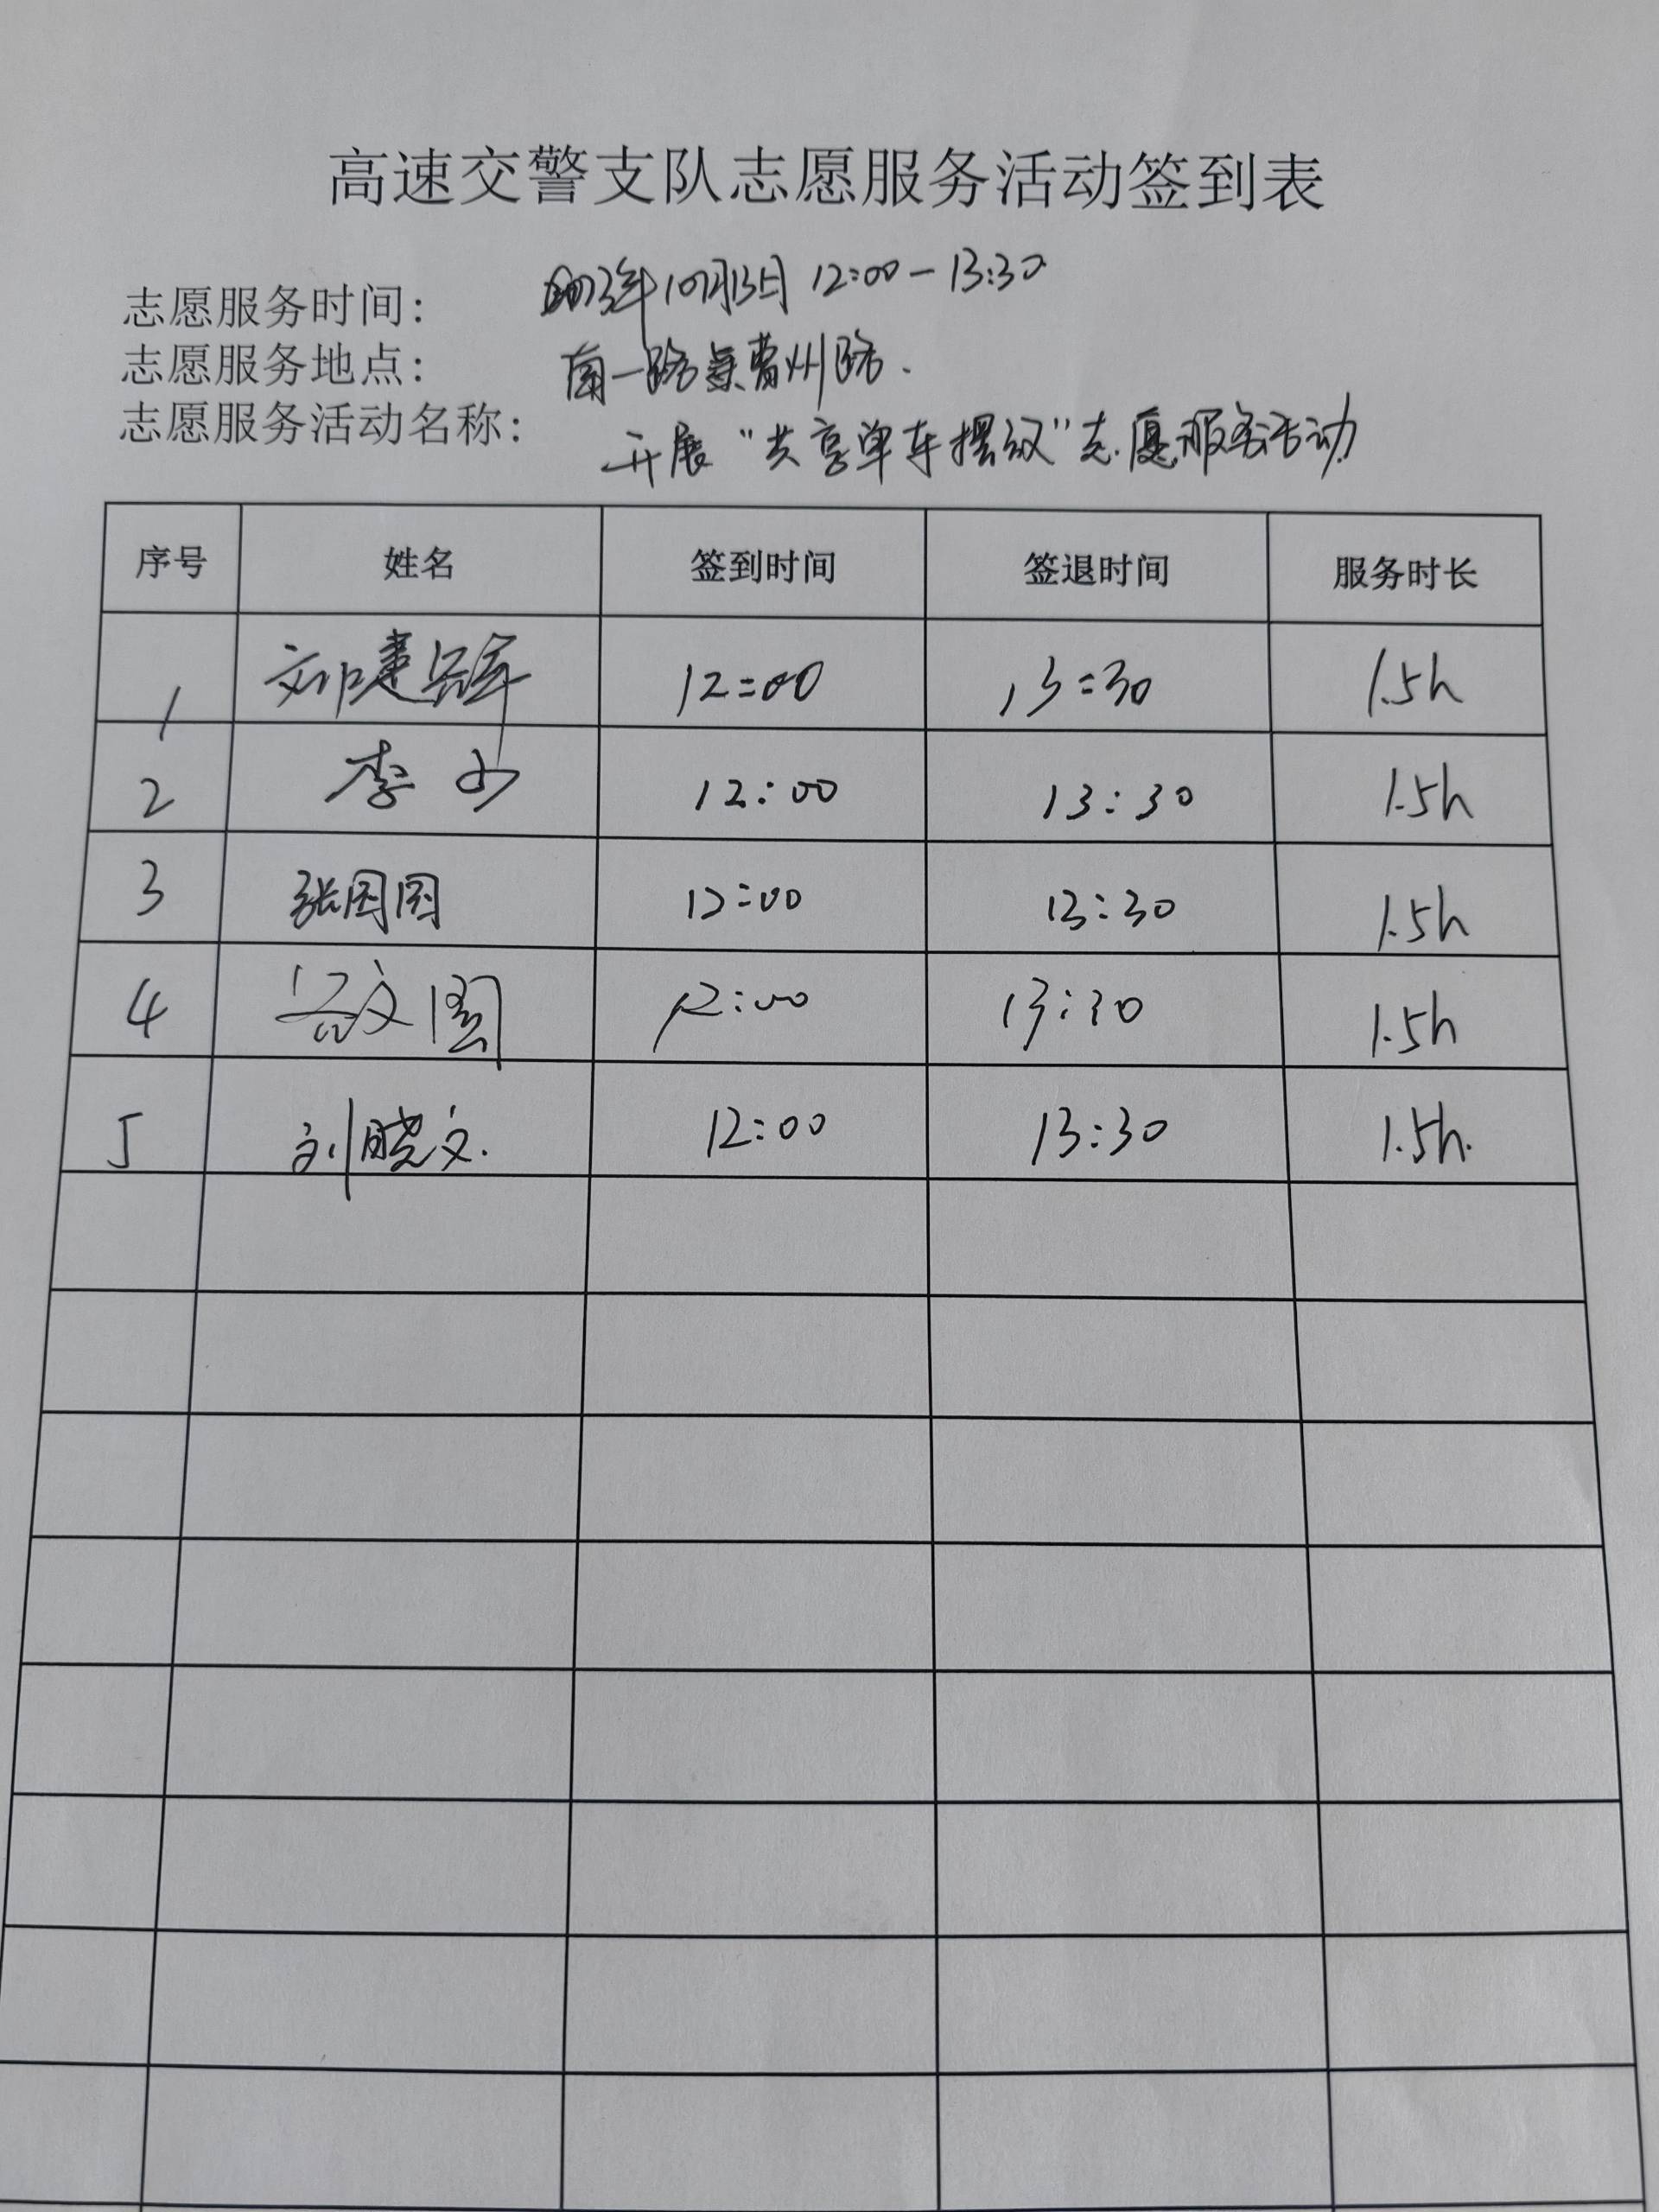 高速交警支队志愿服务活动签到表
志愿服务时间: 2023年10月13日 12:00-13:30
志愿服务地点: 南一路贵州路.
志愿服务活动名称: 开展“共享单车摆放”志愿服务活动
序号 姓名 签到时间 签退时间 服务时长
1 12:00 13:30 1.5h
2 李 12:00 13:30 1.5h
3 张团团 12:00 13:30 1.5h
4 12:00 13:30 1.5h
5 刘晓文. 12:00 13:30 1.5h.